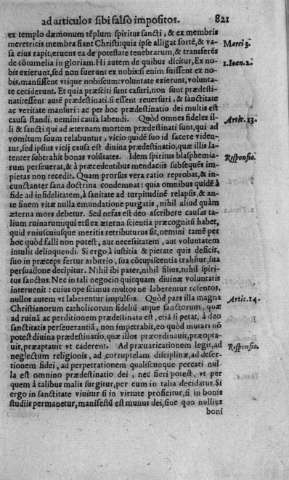 ad articulos sibi falsò impositos. 821
ex templo dæmonum templum spiritus sancti, & ex membris
meretricis membra fiant Christi: quia ipse alligat fortē, & va-
sa eius rapit, eruens ea de potestate tenebrarum, & transferēs
de cōtumelia in gloriam. Hi autem de quibus dicitur, Ex no-
bis exierunt, sed non fuerunt ex nobis: si enim fuissent ex no-
bis, mansissent vtique nobiscum: voluntate exierunt, volunta-
te ceciderunt. Et quia præsciti sunt casuri, non sunt prædesti-
nati: essent autē prædestinati, si essent reuersuri, & in sanctitate
ac veritate mansuri: ac per hoc prædestinatio dei multis est
causa standi, nemini causa labendi.
Quòd omnes fideles il-
li & sancti qui ad æternam mortem prædestinati sunt, qui ad
vomitum suum relabuntur, vicio quidē suo id facere viden-
tur, sed ipsius vicij causa est diuina prædestinatio, quæ illis la-
tenter subtrahit bonas voluntates.
Idem spiritus blasphemia-
rum perseuerat, & à præcedentibus mendacijs subsequēs im-
pietas non recedit. Quam prorsus vera ratio reprobat, & in-
cunctanter sana doctrina condemnat: quia omnibus quidē à
fide ad infidelitatem, à sanitate ad turpitudinē relapsis, & an-
te finem vitæ nulla emundatione purgatis, nihil aliud quàm
æterna mors debetur. Sed nefas est deo ascribere causas ta-
lium ruinarum: qui etsi ex æterna scientia præcogniti habet,
quid vniuscuiusque meritis retributurus sit, nemini tamē per
hoc quòd falli non potest, aut necessitatem, aut voluntatem
intulit delinquendi. Si ergo à iustitia & pietate quis deficit,
suo in præceps fertur arbitrio, sua cōcupiscentia trahitur, sua
persuasione decipitur. Nihil ibi pater, nihil filius, nihil spiri-
tus sanctus: Nec in tali negocio quicquam diuinæ voluntatis
interuenit: cuius ope scimus multos ne laberentur retentos,
nullos autem vt laberentur impulsos.
Quòd pars illa magna
Christianorum catholicorum fideliū atque sanctorum, quæ
ad ruinā ac perditionem prædestinata est, etsi à petat, à deo
sanctitatis perseuerantiā, non impetrabit, eo quòd mutari nō
potest diuina prædestinatio, quæ illos præordinauit, præopta-
uit, præaptauit vt caderent.
Ad præuaricationem legis, ad
neglectum religionis, ad corruptelam disciplinæ, ad deser-
tionem fidei, ad perpetrationem qualiscunque peccati nul-
la est omnino prædestinatio dei, nec fieri potest, vt per
quem à talibus malis surgitur, per eum in talia decidatur. Si
ergo in sanctitate viuitur si in virtute proficitur, si in bonis
studijs permanetur, manifestū est munus dei, sine quo nullius
boni
Matt. 3.
1. Ioan. 2.
Artic. 13.
Responsio.
Artic. 14.
Responsio.